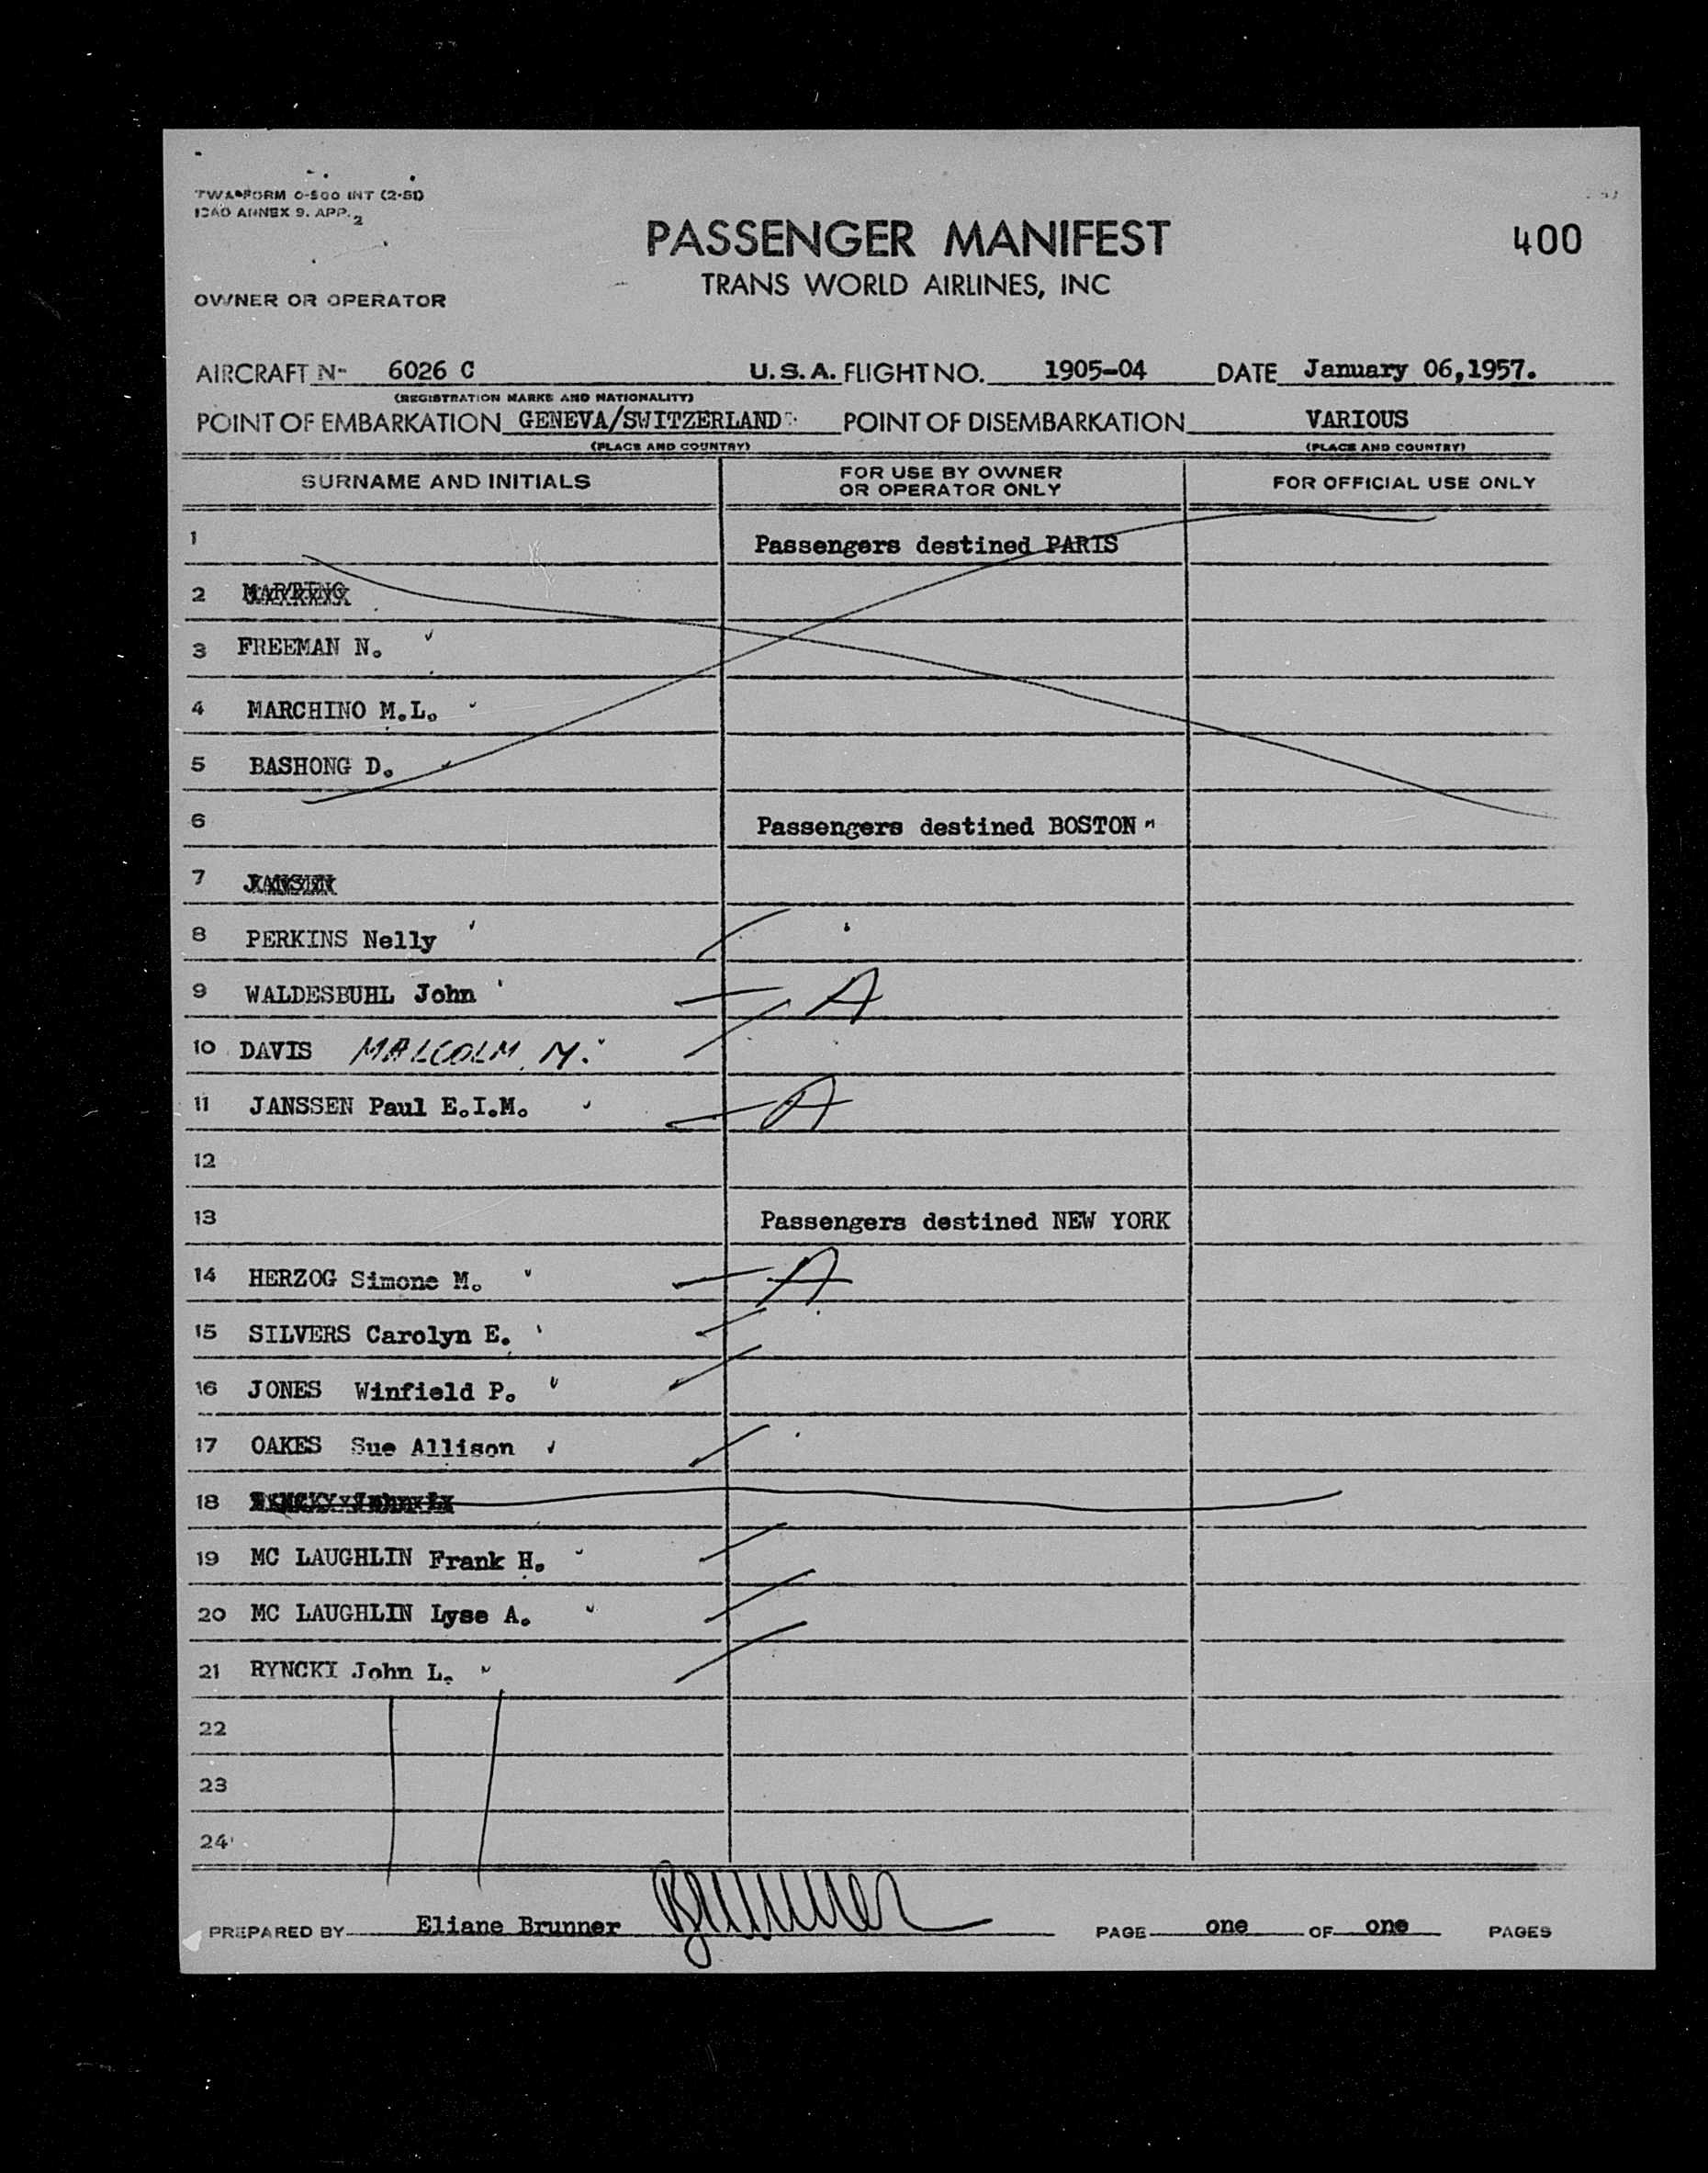 TWA FORM O-500 INT (2-51)
ICAO ANNEX 9. APP. 2
PASSENGER MANIFEST
400
TRANS WORLD AIRLINES, INC
OWNER OR OPERATOR
AIRCRAFT N- 6026 C U.S.A. FLIGHT NO. 1905-04 DATE January 06,1957.
(REGISTRATION MARKS AND NATIONALITY)
POINT OF EMBARKATION GENEVA/SWITZERLAND POINT OF DISEMBARKATION VARIOUS
(PLACE AND COUNTRY) (PLACE AND COUNTRY)
SURNAME AND INITIALS FOR USE BY OWNER OR OPERATOR ONLY FOR OFFICIAL USE ONLY
1 Passengers destined PARIS
2
3 FREEMAN N.
4 MARCHINO M.L.
5 BASHONG D.
6 Passengers destined BOSTON
7
8 PERKINS Nelly
9 WALDESBUHL John A
10 DAVIS MALCOLM M.
11 JANSSEN Paul E.I.M. A
12
13 Passengers destined NEW YORK
14 HERZOG Simone M. A
15 SILVERS Carolyn E.
16 JONES Winfield P.
17 OAKES Sue Allison
18
19 MC LAUGHLIN Frank H.
20 MC LAUGHLIN Lyse A.
21 RYNCKI John L.
22
23
24
PREPARED BY Eliane Brunner Brunner PAGE one OF one PAGES